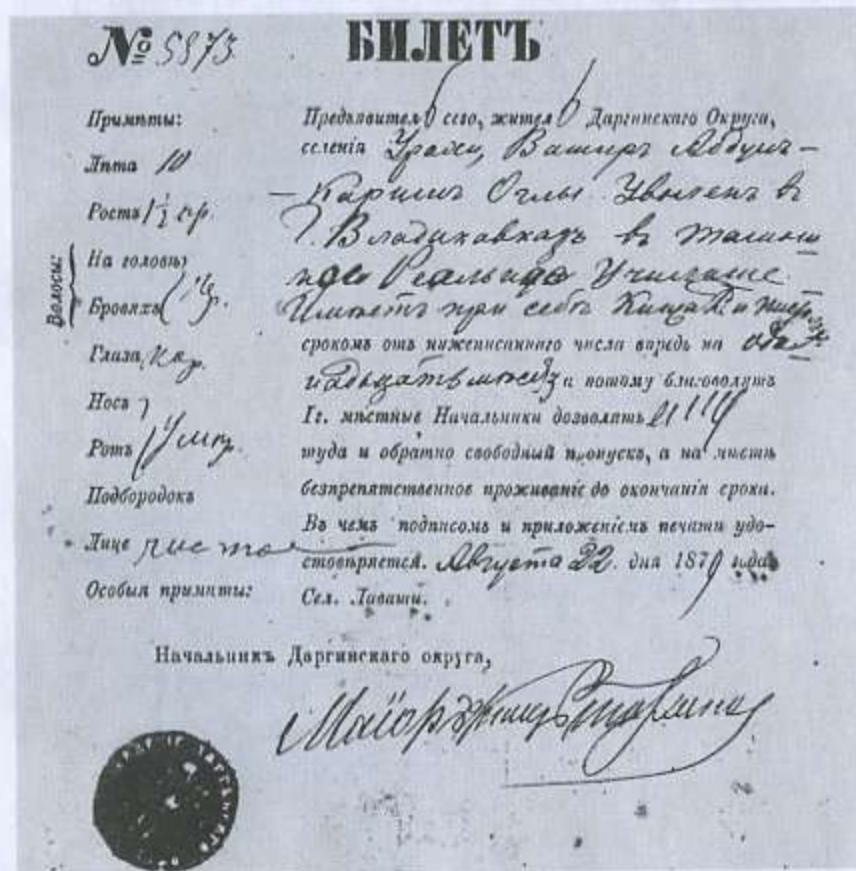 № 5873
БИЛЕТЪ
Примѣты:
Лѣта 10
Ростъ 1 1/2 ар.
Волосы:
На головѣ
Бровяхъ
Глаза кар.
Носъ
Ротъ Умѣр.
Подбородокъ
Лице чистое
Особыя примѣты:
Предъявитель сего, житель Даргинскаго Округа,
селенія Урахи, Баширъ Абдул-
Каримъ Оглы Уволенъ въ
г. Владикавказъ въ
Реальное Училище
Имѣетъ при себѣ Кинжалъ и
срокомъ отъ нижеписаннаго числа впредь на
надцать и потому благоволятъ
Гг. мѣстные Начальники дозволять
туда и обратно свободный пропускъ, а на мѣстѣ
безпрепятственное проживаніе до окончанія срока.
Въ чемъ подписомъ и приложеніемъ печати удо-
стовѣряется. Августа 22 дня 1879 года
Сел. Леваши.
Начальникъ Даргинскаго округа,
Маіоръ